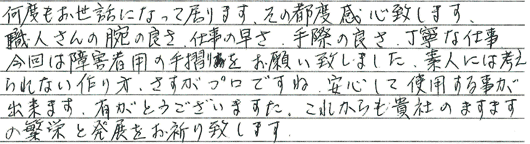 何度もお世話になって居ります、その都度感心致します、
職人さんの腕の良さ、仕事の早さ、手際の良さ、丁寧な仕事
今回は障害者用の手摺をお願い致しました、素人には考え
られない作り方、さすがプロですね、安心して使用する事が
出来ます、有がとうございますた、これからも貴社のますます
の繁栄と発展をお祈り致します、